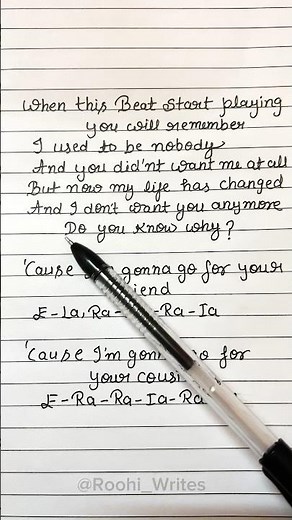 When this Beat start playing
you will remember
I used to be nobody
And you did'nt want me at all
But now my life has changed
And I don't want you anymore
Do you know why?
'Cause gonna go for your
E-La, Ra- -Ra-Ia
'Cause I'm go for
your
E-Ra-Ra-Ia-Ra
@Roohi_Writes